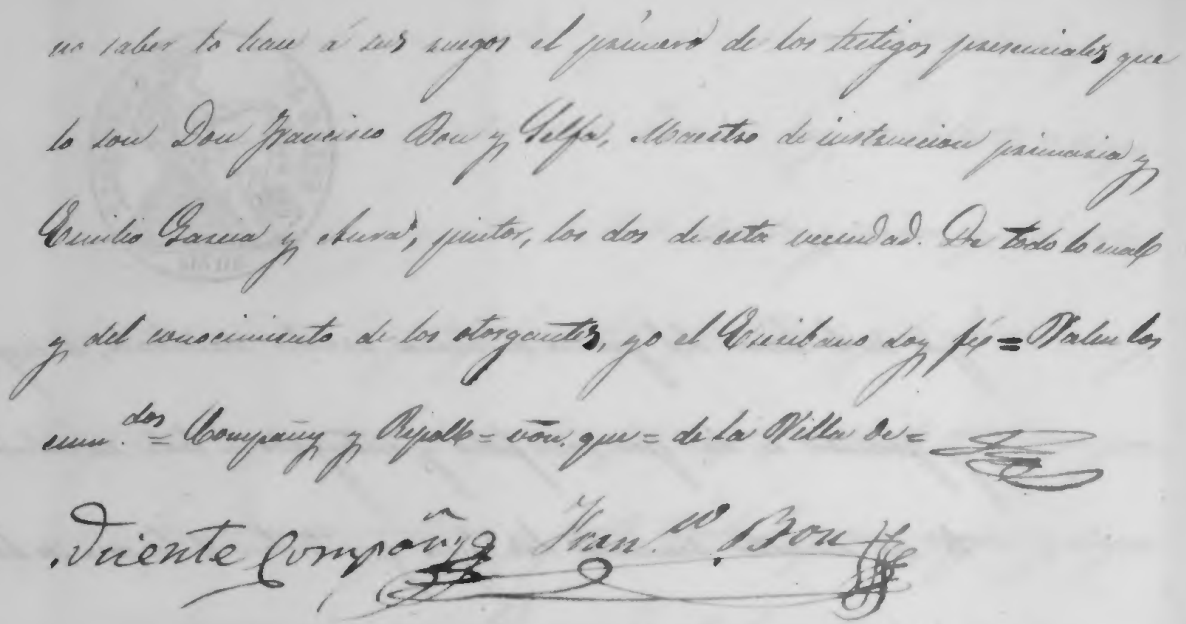 no saber lo hace á sus ruegos el primero de los testigos presenciales que
lo son Don Francisco Bou y Selfa, Maestro de instruccion primaria y
Emilio Garcia y Aura, pintor, los dos de esta vecindad. De todo lo cual
y del conocimiento de los otorgantes, yo el Escribano doy fé = Valen los
enm.dos = Compañy y Ripoll = que = de la Villa de =
Vicente Compañy Fran.co Bou